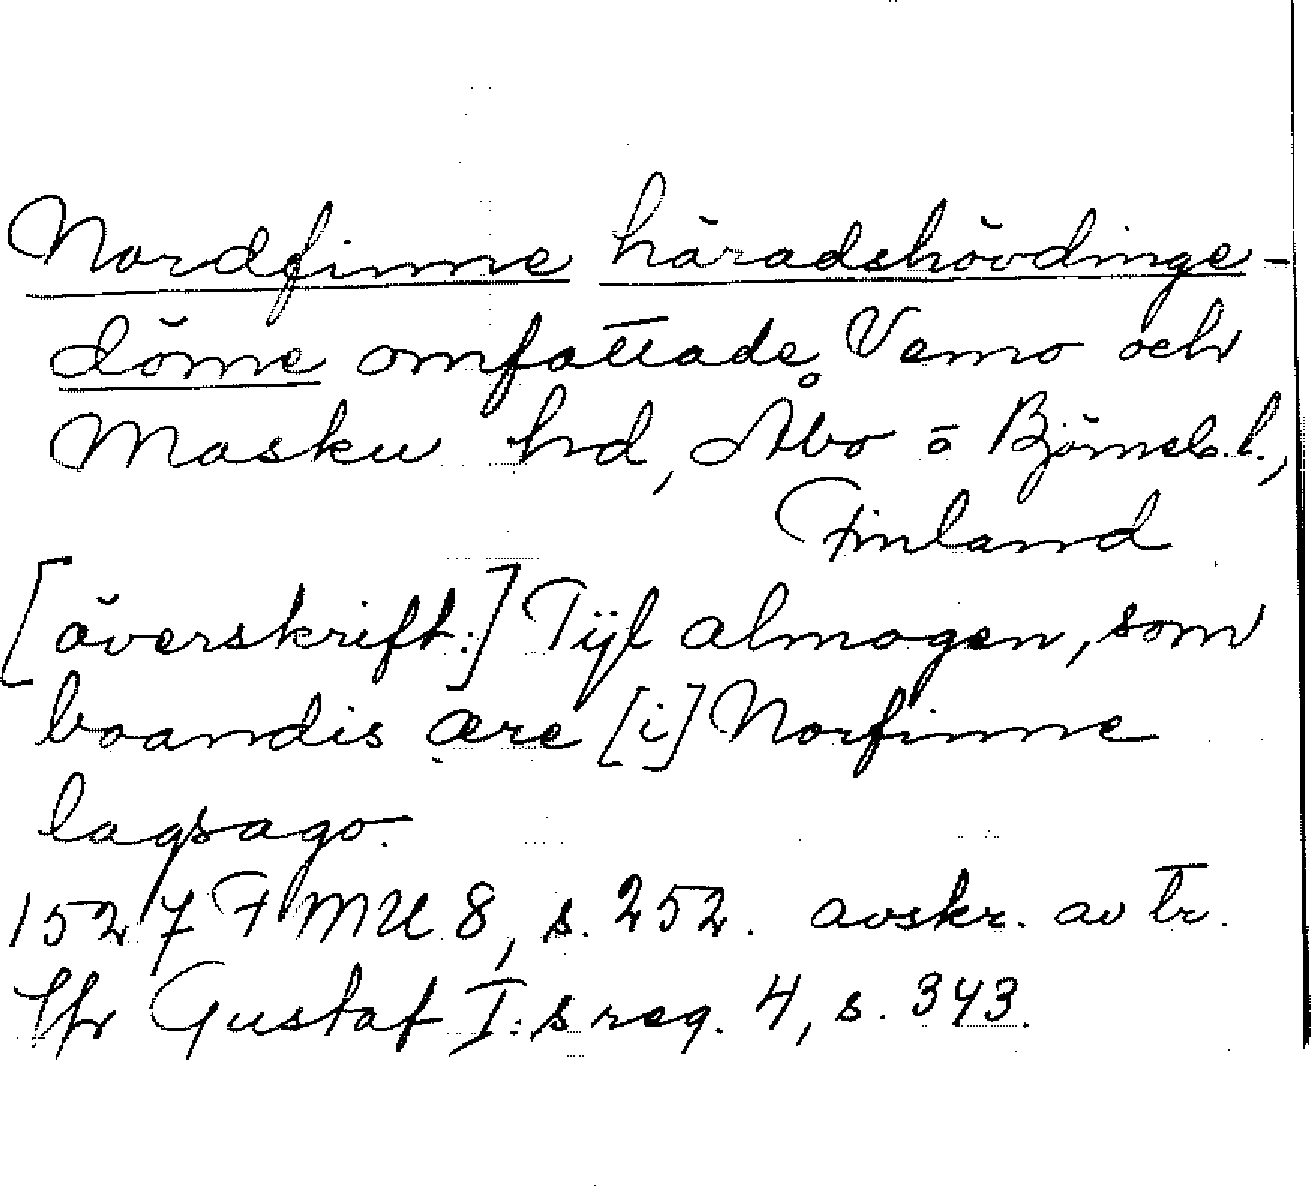 Nordfinne häradshövdinge-
döme omfattade Vemo och
Masku hd, Åbo o Björneb. l.,
Finland
[överskrift:] Tijl almogen, som
boandis ære [i] Norfinne
lagsago.
1527 FMU 8, s. 252. avskr. av tr.
Gustaf I:s reg. 4, s. 343.